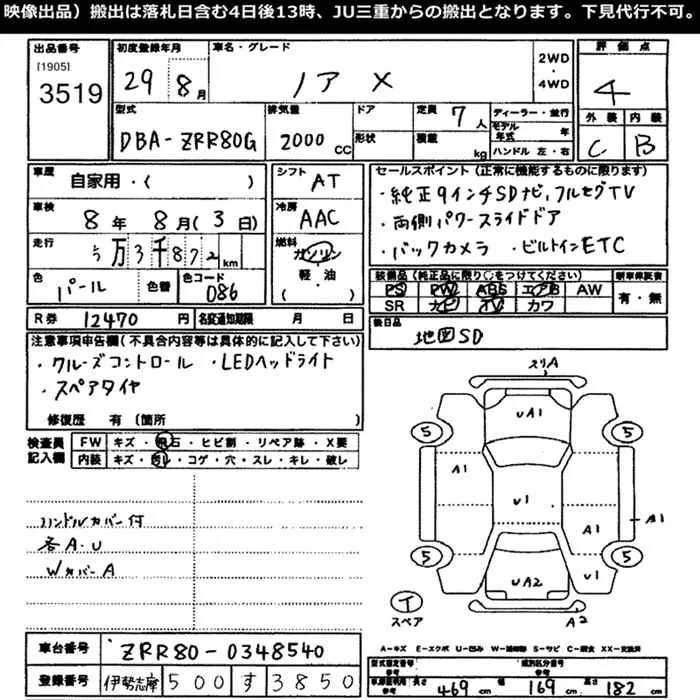 映像出品）搬出は落札日含む4日後13時、JU三重からの搬出となります。下見代行不可。
出品番号
[1905]
3519
初度登録年月
29年 8月
車名・グレード
ノア X
2WD
・
4WD
評価点
4
外装 内装
C B
型式
DBA-ZRR80G
排気量
2000 CC
ドア
形状
定員 7人
積載 kg
ディーラー・並行
モデル年式 年
ハンドル 左・右
車歴
自家用・( )
シフト
AT
車検
8年 8月( 3日)
冷房
AAC
走行
5万3千872km
燃料
ガソリン
軽・油
( )
色
パール
色替
色コード
086
R券 12470円
名変通知期限 月 日
セールスポイント（正常に機能するものに限ります）
・純正9インチSDナビ,フルセグTV
・両側パワースライドドア
・バックカメラ ・ビルトインETC
装備品（純正品に限り○をつけてください）
PS PW ABS エアB AW
SR ナビ TV カワ
新車保証書
有・無
後日品
地図SD
注意事項申告欄（不具合内容等は具体的に記入して下さい）
・クルーズコントロール ・LEDヘッドライト
・スペアタイヤ
修復歴 有（箇所 ）
検査員
記入欄
FW キズ・飛石・ヒビ割・リペア跡・X要
内装 キズ・汚レ・コゲ・穴・スレ・キレ・破レ
ハンドルカバー付
各A・U
WカバーA
スリA
UA1
5 5
A1
U1
A1
A1
5 5
U1
UA2
A2
イ
スペア
A-キズ E-エクボ U-凹み W-補修跡 S-サビ C-腐食 XX-交換済
車台番号
ZRR80-0348540
登録番号
伊勢志摩 500 す 3850
型式指定番号
参考
類別区分番号
参考
長さ 469cm
幅 169cm
高さ 182cm